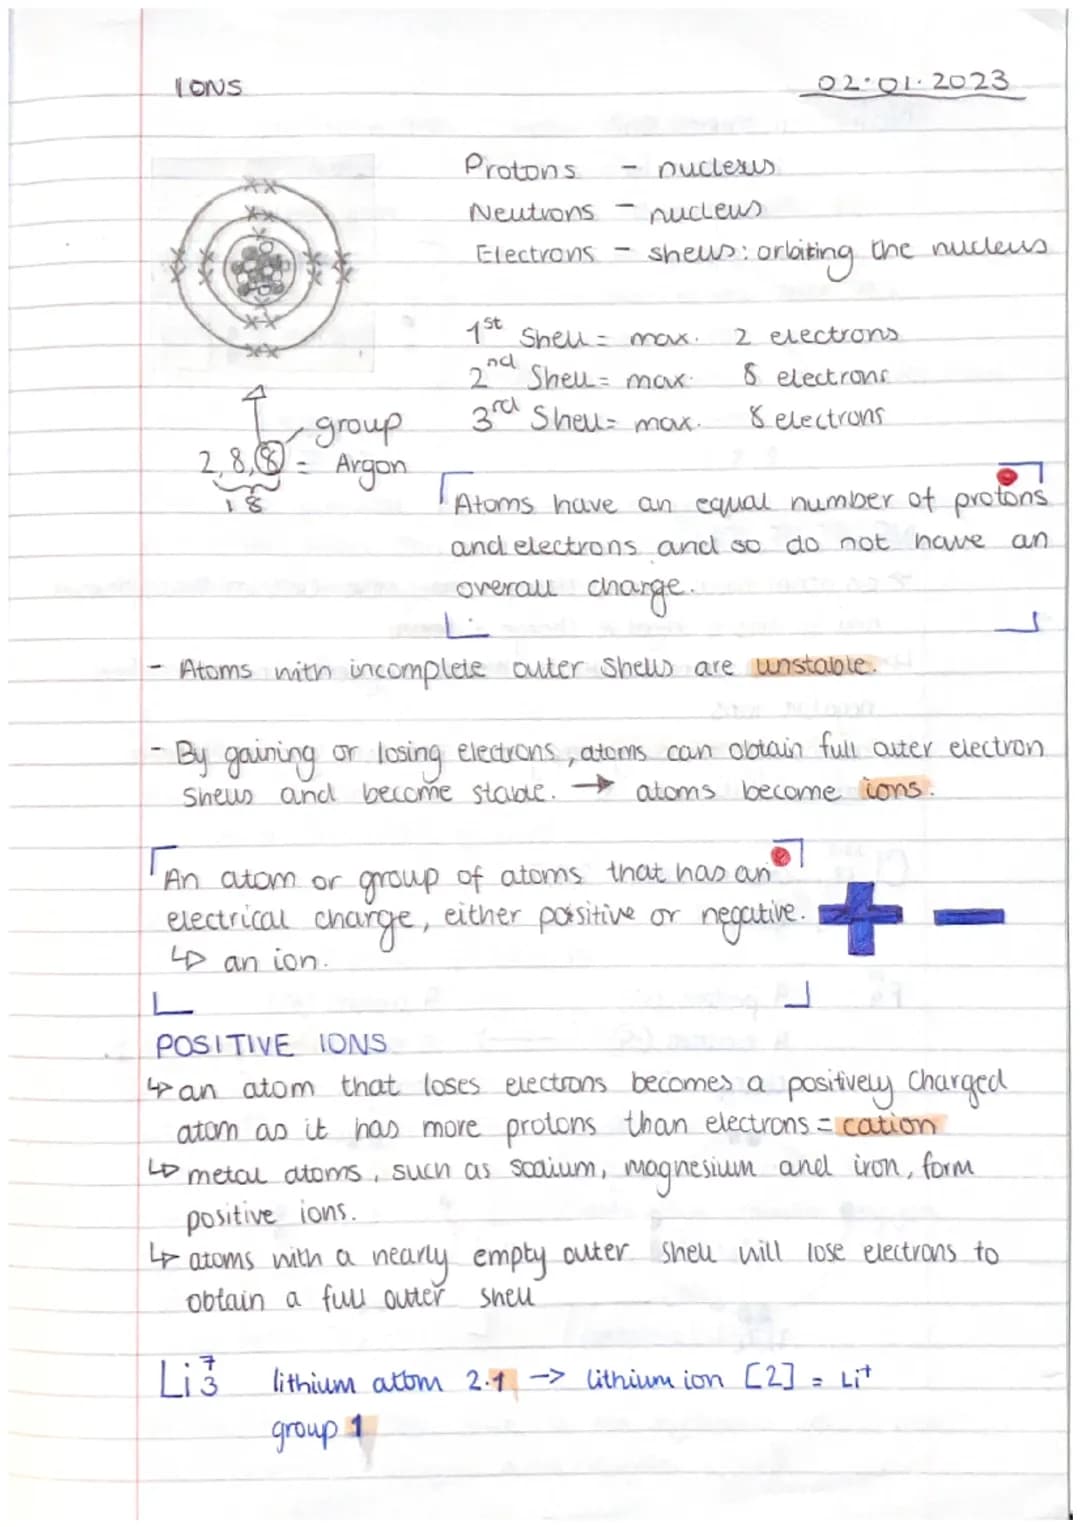 IONS
02.01.2023
Protons - nucleus
Neutrons - nucleus
Electrons - shells: orbiting the nucleus
1st Shell = max. 2 electrons
2nd Shell = max. 8 electrons
3rd Shell = max. 8 electrons
group
2,8,8 = Argon
18
Atoms have an equal number of protons
and electrons and so do not have an
overall charge.
- Atoms with incomplete outer shells are unstable.
- By gaining or losing electrons, atoms can obtain full outer electron
shells and become stable. → atoms become ions.
An atom or group of atoms that has an
electrical charge, either positive or negative. + -
↳ an ion.
POSITIVE IONS
↳ an atom that loses electrons becomes a positively charged
atom as it has more protons than electrons = cation
↳ metal atoms, such as sodium, magnesium and iron, form
positive ions.
↳ atoms with a nearly empty outer shell will lose electrons to
obtain a full outer shell
Li 7 3 lithium atom 2.1 -> lithium ion [2] = Li+
group 1